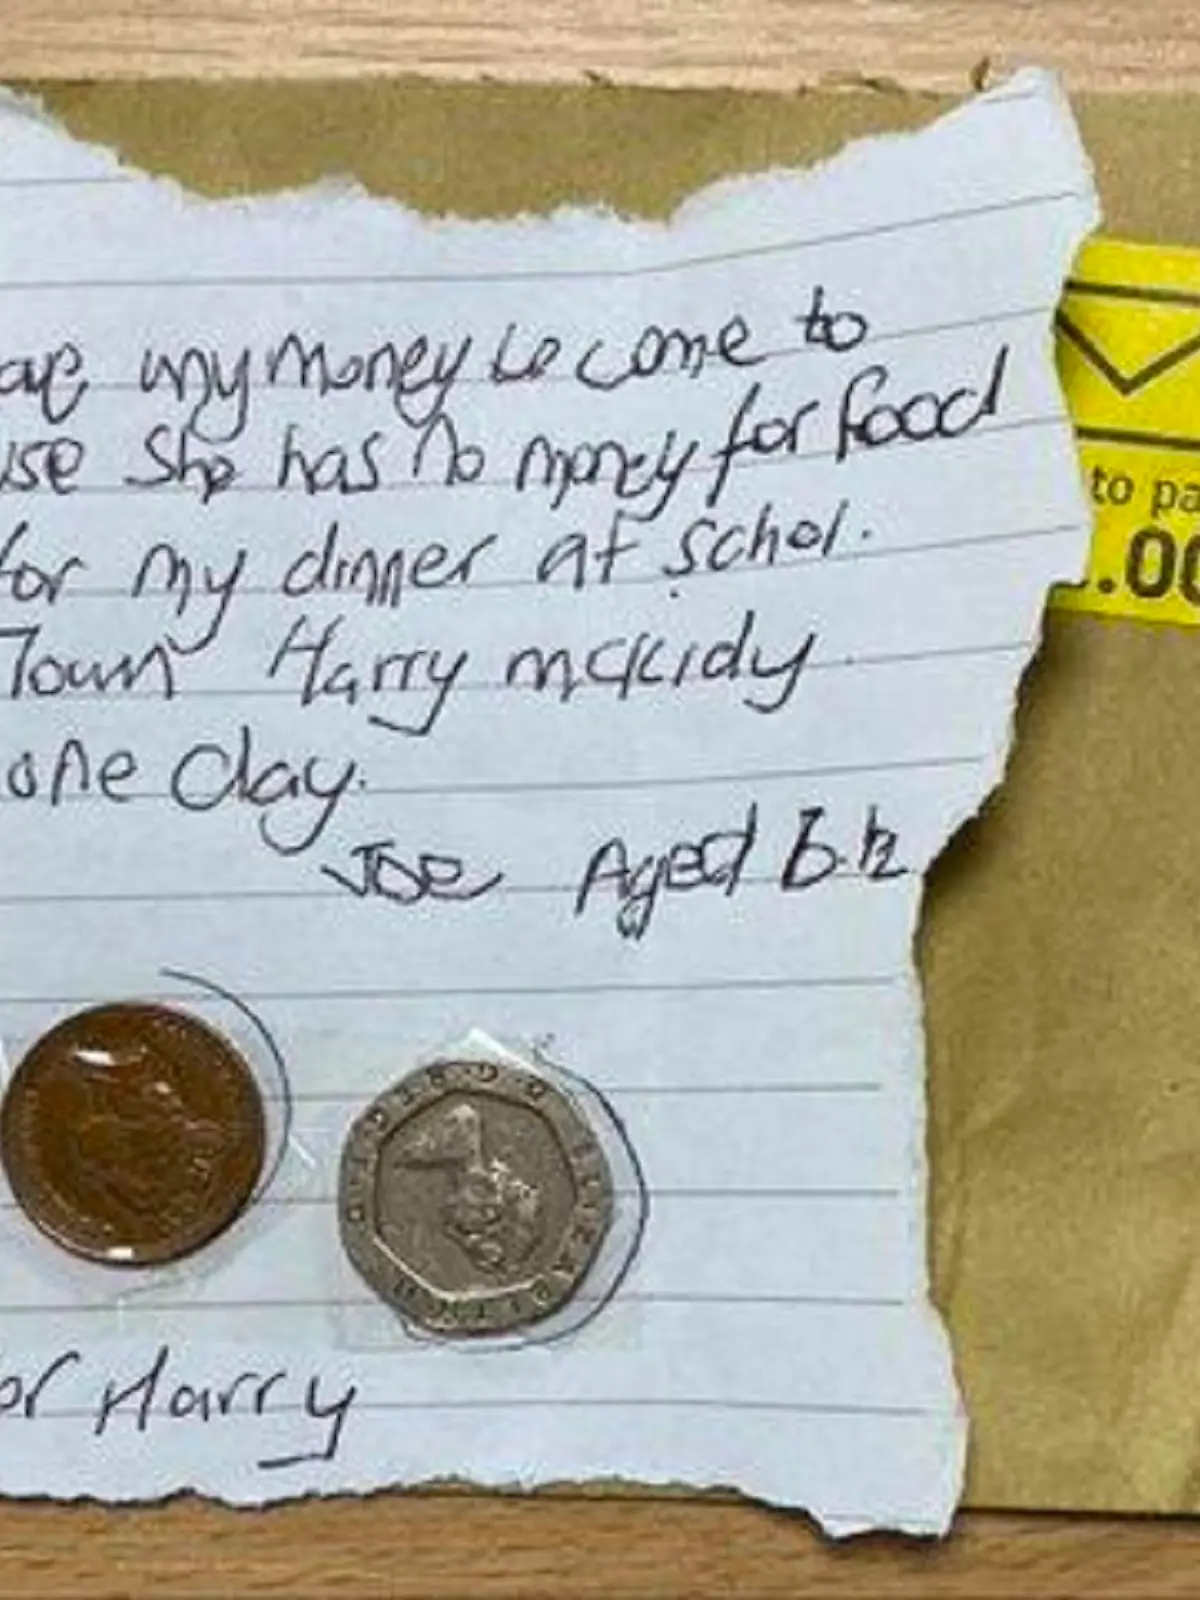 my money to come to
use she has no money for food
for my dinner at schol.
Town Harry mckidy
one day.
Joe Aged 6.½
or Harry
to pa
.00